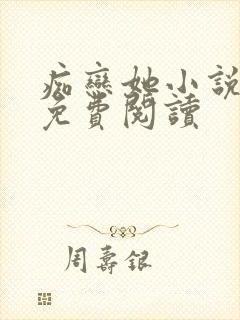 痴戀她小說
免費閱讀
周壽銀